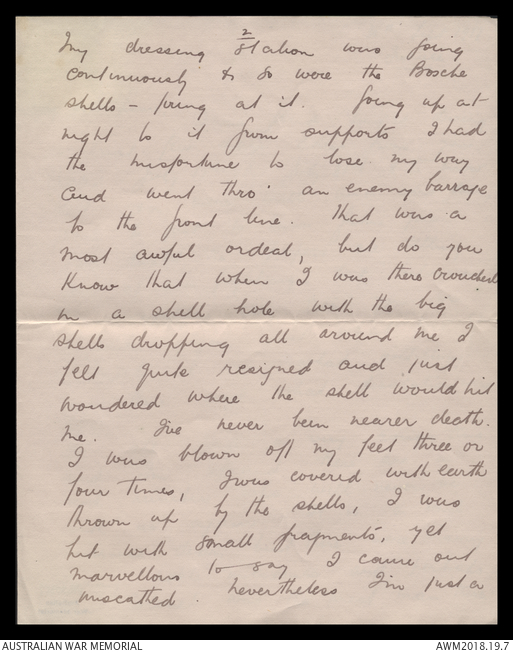 2
My dressing station was going
continuously & so were the Bosche
shells - firing at it. Going up at
night to it from supports I had
the misfortune to lose my way
and went thro' an enemy barrage
to the front line. That was a
most awful ordeal, but do you
know that when I was there crouched
in a shell hole with the big
shells dropping all around me I
felt quite resigned and just
wondered where the shell would hit
me. I've never been nearer death.
I was blown off my feet three or
four times, I was covered with earth
thrown up by the shells, I was
hit with small fragments, yet
marvellous to say I came out
unscathed. Nevertheless I'm just a
AUSTRALIAN WAR MEMORIAL
AWM2018.19.7